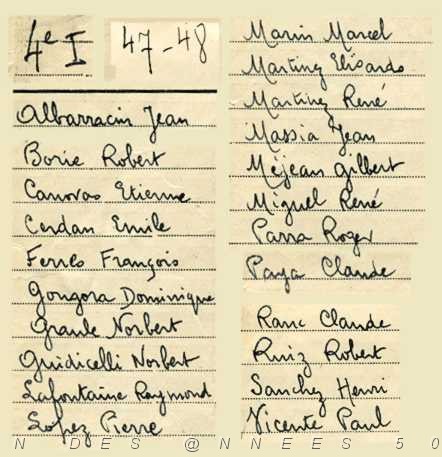 4e I 47-48
Albarracin Jean
Borie Robert
Canovas Etienne
Cerdan Emile
Ferres François
Gongora Dominique
Graule Norbert
Guidicelli Norbert
Lafontaine Raymond
Lopez Pierre
Marin Marcel
Martinez Elisardo
Martinez René
Massia Jean
Méjean Gilbert
Miguel René
Parra Roger
Paya Claude
Ranc Claude
Ruiz Robert
Sanchez Henri
Vicente Paul
N DES @NNEES 50